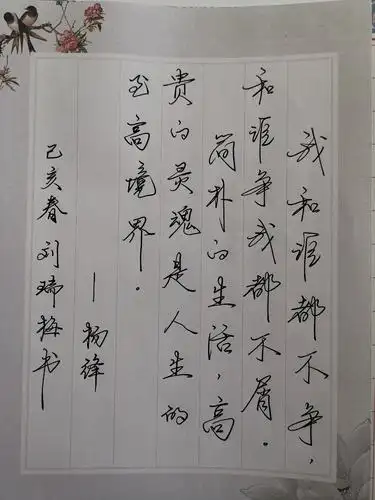 我和谁都不争,
和谁争我都不屑.
简朴的生活,高
贵的灵魂是人生的
至高境界.
—杨绛
己亥春刘瑞梅书